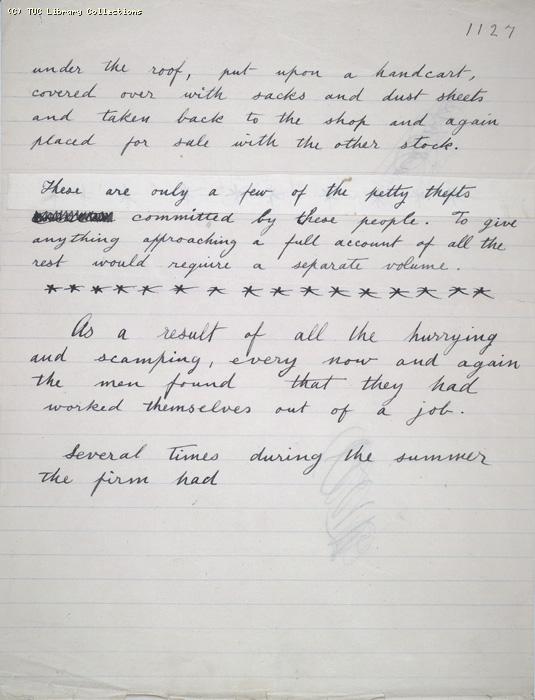 (C) TUC Library Collections
1127
under the roof, put upon a handcart,
covered over with sacks and dust sheets
and taken back to the shop and again
placed for sale with the other stock.
These are only a few of the petty thefts
committed by these people. To give
anything approaching a full account of all the
rest would require a separate volume.
* * * * * * * * * * * * * * * * * *
As a result of all the hurrying
and scamping, every now and again
the men found that they had
worked themselves out of a job.
Several times during the summer
the firm had